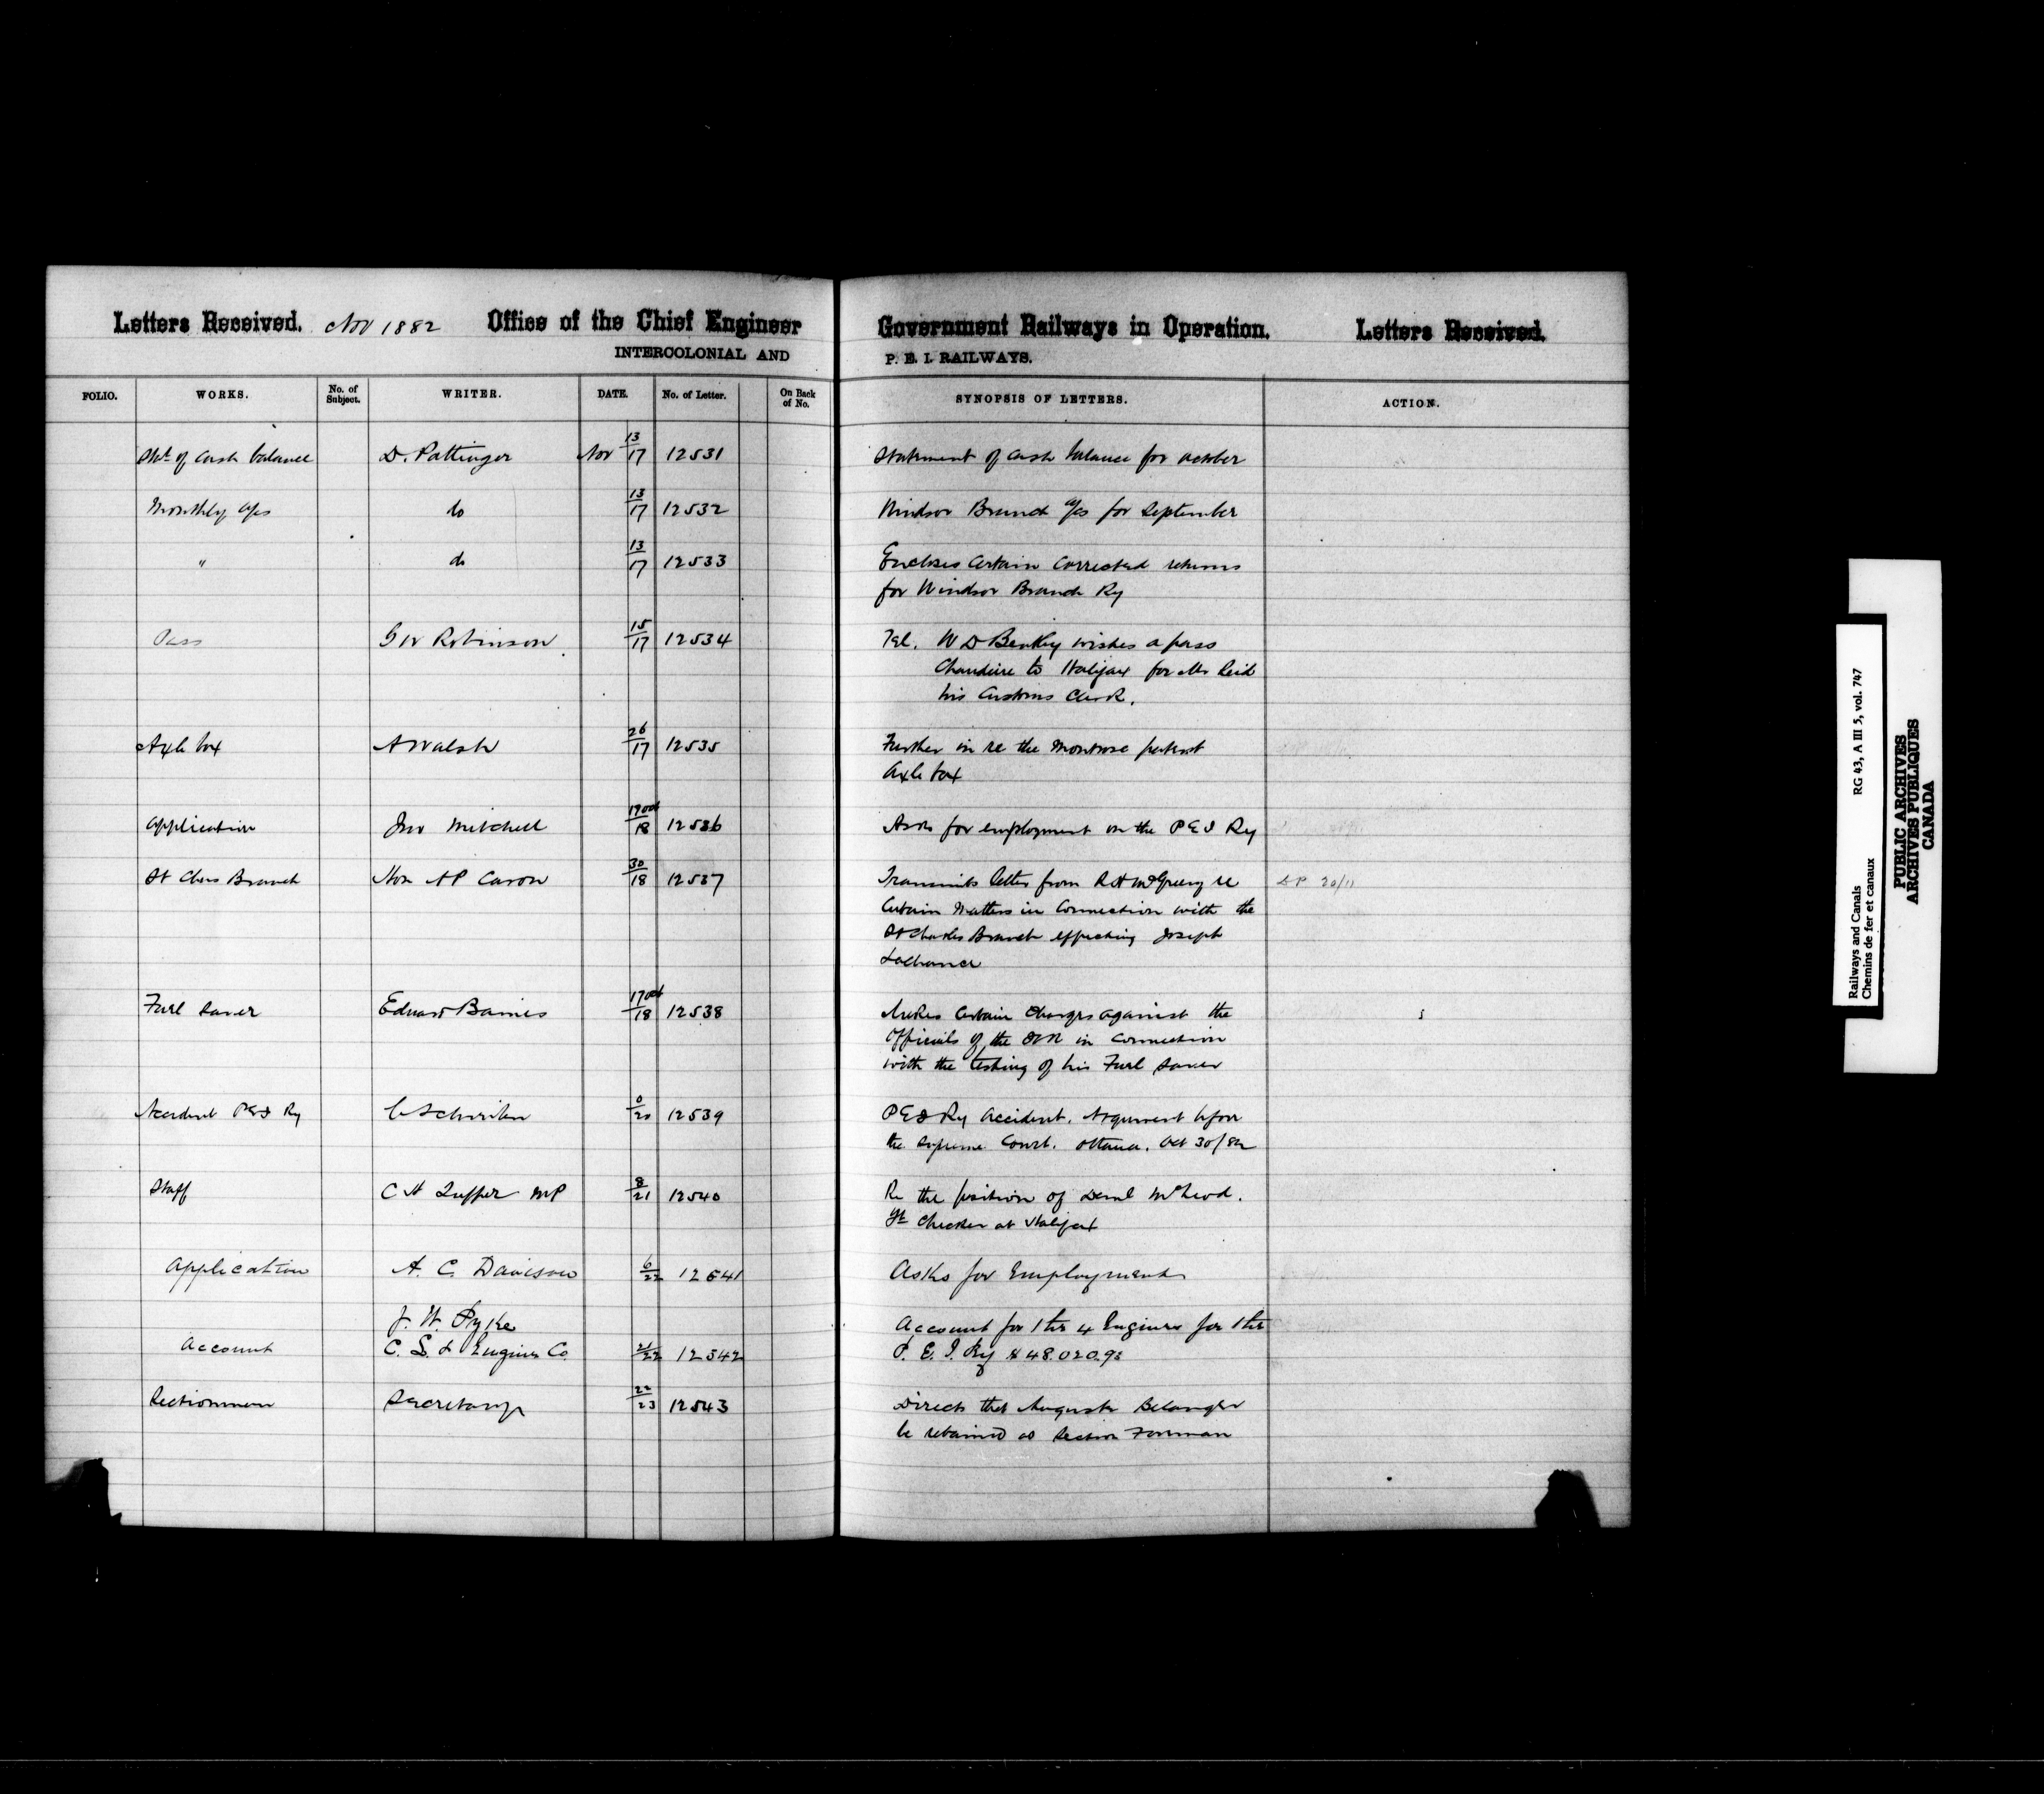 Letters Received. Nov 1882 Office of the Chief Engineer Government Railways in Operation. Letters Received.
INTERCOLONIAL AND P. E. I. RAILWAYS.
FOLIO. WORKS. No. of Subject. WRITER. DATE. No. of Letter. On Back of No. SYNOPSIS OF LETTERS. ACTION.
Stat of Cash balance D. Pottinger Nov 13/17 12531 Statement of Cash balance for October
Monthly a/cs do 13/17 12532 Windsor Branch a/cs for September
" do 13/17 12533 Encloses Certain Corrected returns
for Windsor Branch Ry
Pass G W Robinson 15/17 12534 Tel. W D wishes a pass
Chaudiere to Halifax for Mr Reid
his Customs Clerk.
Axle box A Walsh 26/17 12535 Further in re the Montrose patent
Axle box
Application Jno Mitchell 19 Oct/18 12536 Asks for employment on the P E I Ry
St Chas Branch Hon A P Caron 30/18 12537 Transmits letter from R H McGreevy re DP 20/11
Certain Matters in Connection with the
St Charles Branch effecting Joseph
Lachance
Fuel Saver Edward Baines 17 Oct/18 12538 Makes Certain Charges against the
Officials of the ICR in Connection
with the testing of his Fuel Saver
Accident P E I Ry C Schreiber 12539 P E I Ry Accident. Argument before
the Supreme Court. Ottawa. Oct 30/82
Staff C H Tupper MP 8/21 12540 Re the position of McLeod.
Checker at Halifax
Application A. C. Davison 6/22 12541 Asks for Employment
J. W. Pyke Account for the 4 Engines for the
Account C. L. & Engine Co. 21/22 12542 P. E. I. Ry $48.020.93
Sectionmen Secretary 22/23 12543 Directs that Auguste Belanger
be retained as Section Foreman
Railways and Canals RG 43, A III 5, vol. 747
Chemins de fer et canaux
PUBLIC ARCHIVES
ARCHIVES PUBLIQUES
CANADA